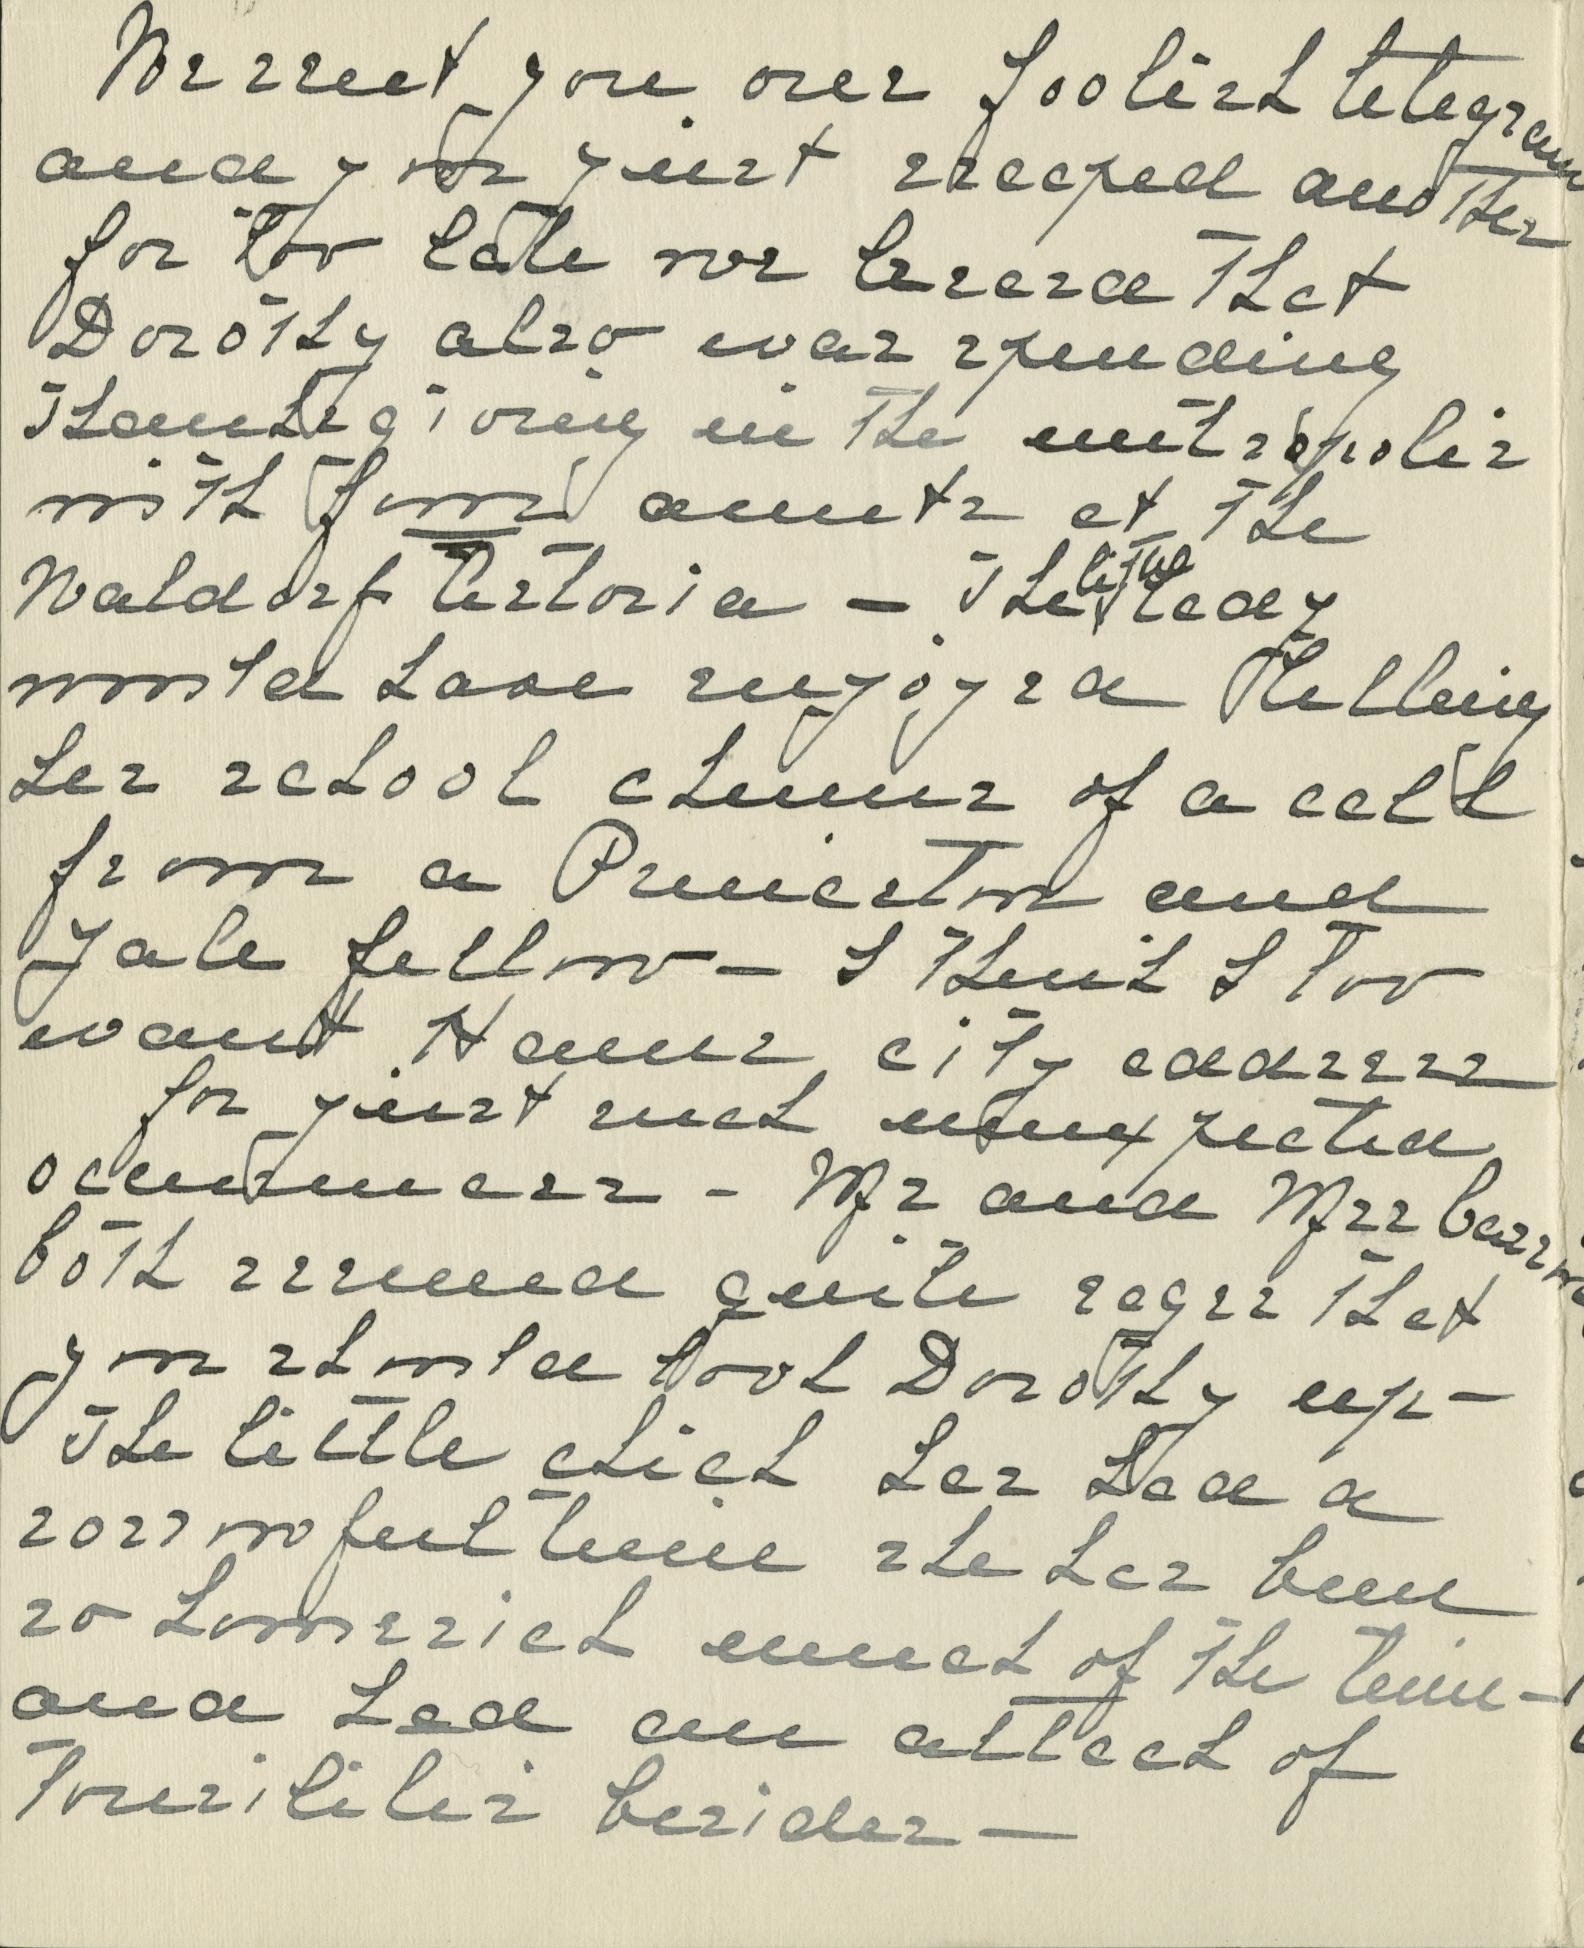 We sent you our foolish telegram
and you just escaped another
for too late we learned that
Dorothy also was spending
Thanksgiving in the metropolis
with four aunts at the
Waldorf Astoria — The little lady
would have enjoyed telling
her school chums of a call
from a Princeton and
Yale fellow — I think I too
want Hanns city address
for just such unexpected
occurrences - Mr and Mrs
both seemed quite eager that
you should look Dorothy up —
The little chick has had a
sorrowful time she has been
so homesick much of the time —
and had an attack of
Tonsilitis besides —